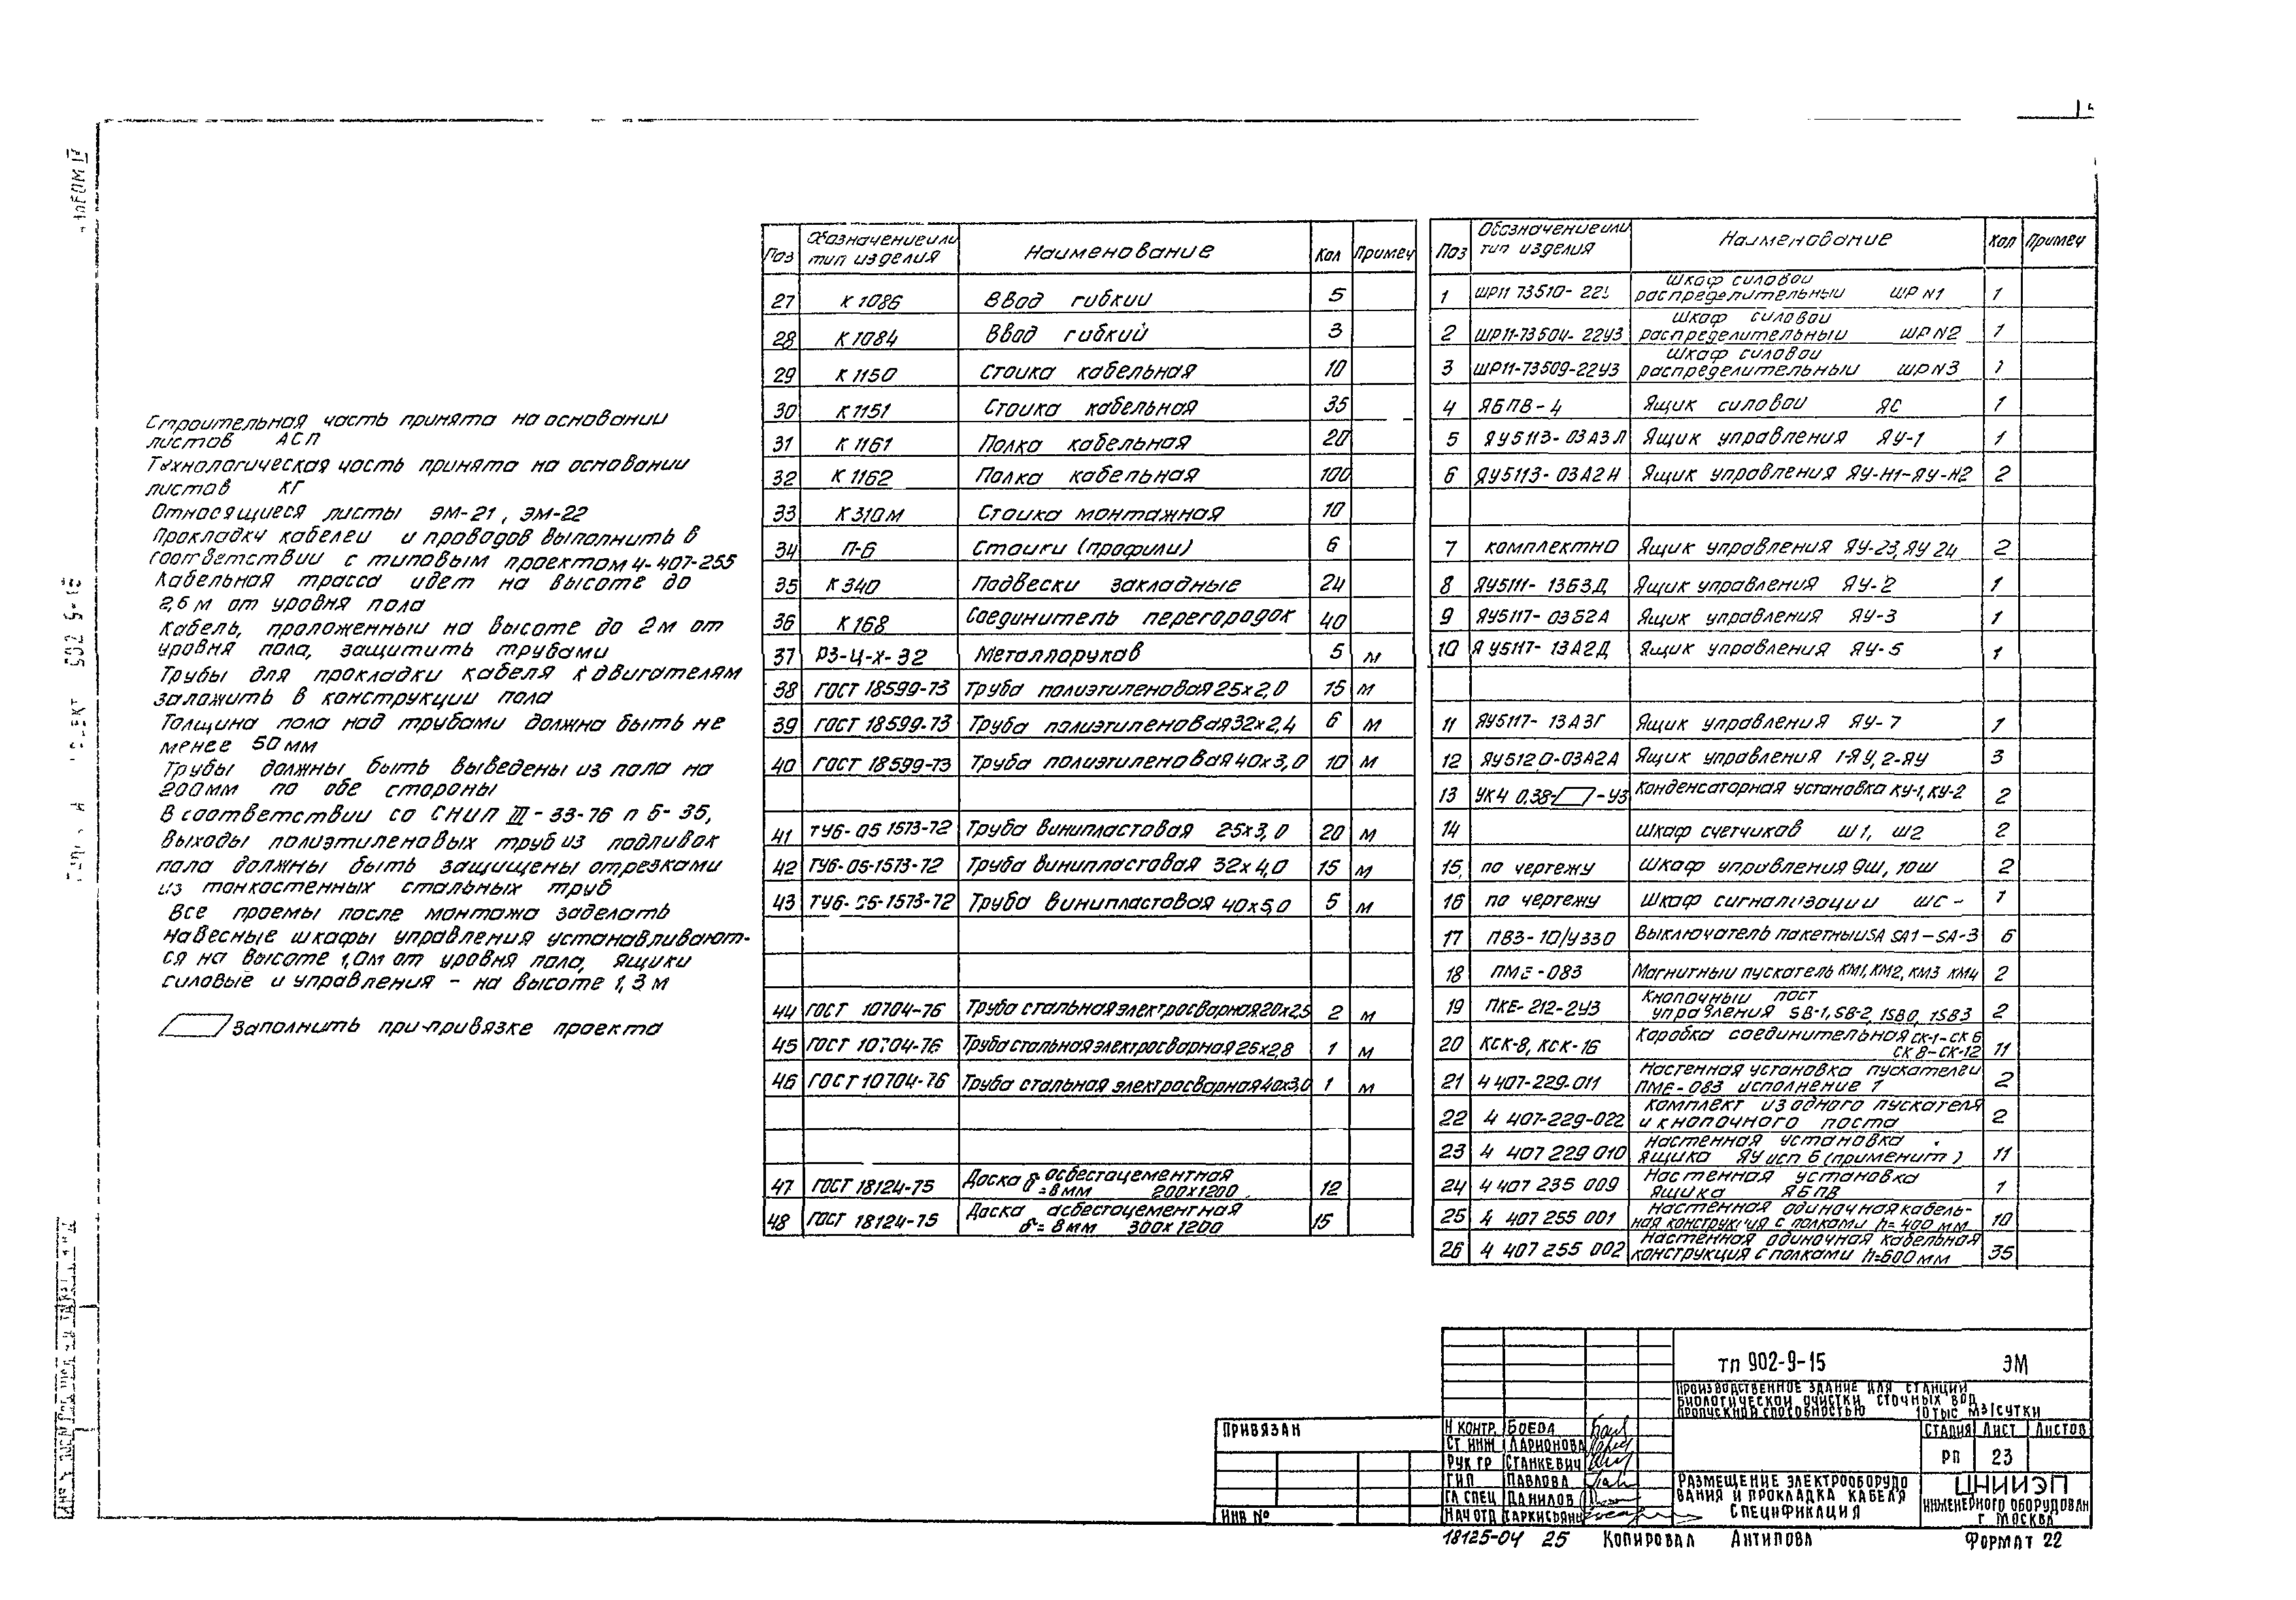 Альбом IV
Строительная часть принята на основании
листов АСП
Технологическая часть принята на основании
листов КГ
Относящиеся листы ЭМ-21, ЭМ-22
Прокладку кабелей и проводов выполнить в
соответствии с типовым проектом 4-407-255
Кабельная трасса идет на высоте до
2,6 м от уровня пола
Кабель, проложенный на высоте до 2 м от
уровня пола, защитить трубами
Трубы для прокладки кабеля к двигателям
заложить в конструкции пола
Толщина пола над трубами должна быть не
менее 50 мм
Трубы должны быть выведены из пола на
200мм по обе стороны
В соответствии со СНИП III-33-76 п 5-35,
Выходы полиэтиленовых труб из подливок
пола должны быть защищены отрезками
из тонкостенных стальных труб
Все проемы после монтажа заделать
Навесные шкафы управления устанавливают-
ся на высоте 1,0м от уровня пола, ящики
силовые и управления - на высоте 1,3 м
заполнить при привязке проекта
Поз Обозначение или тип изделия Наименование Кол Примеч
27 К 1086 Ввод гибкий 5
28 К 1084 Ввод гибкий 3
29 К 1150 Стойка кабельная 10
30 К 1151 Стойка кабельная 35
31 К 1161 Полка кабельная 20
32 К 1162 Полка кабельная 100
33 К 310М Стойка монтажная 10
34 П-6 Стойки (профили) 6
35 К 340 Подвески закладные 24
36 К 168 Соединитель перегородок 40
37 РЗ-Ц-Х-32 Металлорукав 5 м
38 ГОСТ 18599-73 Труба полиэтиленовая 25х2,0 15 м
39 ГОСТ 18599-73 Труба полиэтиленовая 32х2,4 6 м
40 ГОСТ 18599-73 Труба полиэтиленовая 40х3,0 10 м
41 ТУ6-05 1573-72 Труба винипластовая 25х3,0 20 м
42 ТУ6-05-1573-72 Труба винипластовая 32х4,0 15 м
43 ТУ6-05-1573-72 Труба винипластовая 40х5,0 5 м
44 ГОСТ 10704-76 Труба стальная электросварная 20х2,5 2 м
45 ГОСТ 10704-76 Труба стальная электросварная 25х2,8 1 м
46 ГОСТ 10704-76 Труба стальная электросварная 40х3,0 1 м
47 ГОСТ 18124-75 Доска асбестоцементная
δ=8мм 200х1200 12
48 ГОСТ 18124-75 Доска асбестоцементная
δ=8мм 300х1200 15
Поз Обозначение или тип изделия Наименование Кол Примеч
1 ШР11 73510-22 Шкаф силовой
распределительный ШР N1 1
2 ШР11-73504-22У3 Шкаф силовой
распределительный ШР N2 1
3 ШР11-73509-22У3 Шкаф силовой
распределительный ШР N3 1
4 ЯБПВ-4 Ящик силовой ЯС 1
5 ЯУ5113-03А3Л Ящик управления ЯУ-1 1
6 ЯУ5113-03А2Н Ящик управления ЯУ-Н1-ЯУ-Н2 2
7 комплектно Ящик управления ЯУ-23, ЯУ 24 2
8 ЯУ5111-13Б3Д Ящик управления ЯУ-2 1
9 ЯУ5117-03Б2А Ящик управления ЯУ-3 1
10 ЯУ5117-13А2Д Ящик управления ЯУ-5 1
11 ЯУ5117-13А3Г Ящик управления ЯУ-7 1
12 ЯУ5120-03А2А Ящик управления 1-ЯУ, 2-ЯУ 3
13 УК4 0,38- -У3 Конденсаторная установка КУ-1, КУ-2 2
14 Шкаф счетчиков Ш1, Ш2 2
15 по чертежу Шкаф управления 9Ш, 10Ш 2
16 по чертежу Шкаф сигнализации ШС- 1
17 ПВ3-10/У330 Выключатель пакетный SA SA1-SA-3 6
18 ПМЕ-083 Магнитный пускатель КМ1, КМ2, КМ3 КМ4 2
19 ПКЕ-212-2У3 Кнопочный пост
управления SB-1, SB-2, 1SB0, 1SB3 2
20 КСК-8, КСК-16 Коробка соединительная СК-1-СК 6
СК 8-СК-12 11
21 4 407-229-011 Настенная установка пускателей
ПМЕ-083 исполнение 1 2
22 4 407-229-022 Комплект из одного пускателя
и кнопочного поста 2
23 4 407 229 010 Настенная установка
ящика ЯУ исп 6 (применит) 11
24 4 407 235 009 Настенная установка
ящика ЯБПВ 1
25 4 407 255 001 Настенная одиночная кабель-
ная конструкция с полками h=400 мм 10
26 4 407 255 002 Настенная одиночная кабельная
конструкция с полками h=600 мм 35
ПРИВЯЗАН
ИНВ №
ТП 902-9-15 ЭМ
ПРОИЗВОДСТВЕННОЕ ЗДАНИЕ ДЛЯ СТАНЦИИ
БИОЛОГИЧЕСКОЙ ОЧИСТКИ СТОЧНЫХ ВОД
ПРОПУСКНОЙ СПОСОБНОСТЬЮ 10 ТЫС М3/СУТКИ
Н КОНТР. БОЕВА
СТ ИНЖ ЛАРИОНОВА
РУК ГР СТАНКЕВИЧ
ГИП ПАВЛОВА
ГЛ СПЕЦ ДАНИЛОВ
НАЧ ОТД
СТАДИЯ ЛИСТ ЛИСТОВ
РП 23
РАЗМЕЩЕНИЕ ЭЛЕКТРООБОРУДО
ВАНИЯ И ПРОКЛАДКА КАБЕЛЯ
СПЕЦИФИКАЦИЯ
ЦНИИЭП
ИНЖЕНЕРНОГО ОБОРУДОВАН
Г МОСКВА
18125-04 25 КОПИРОВАЛ АНТИПОВА ФОРМАТ 22